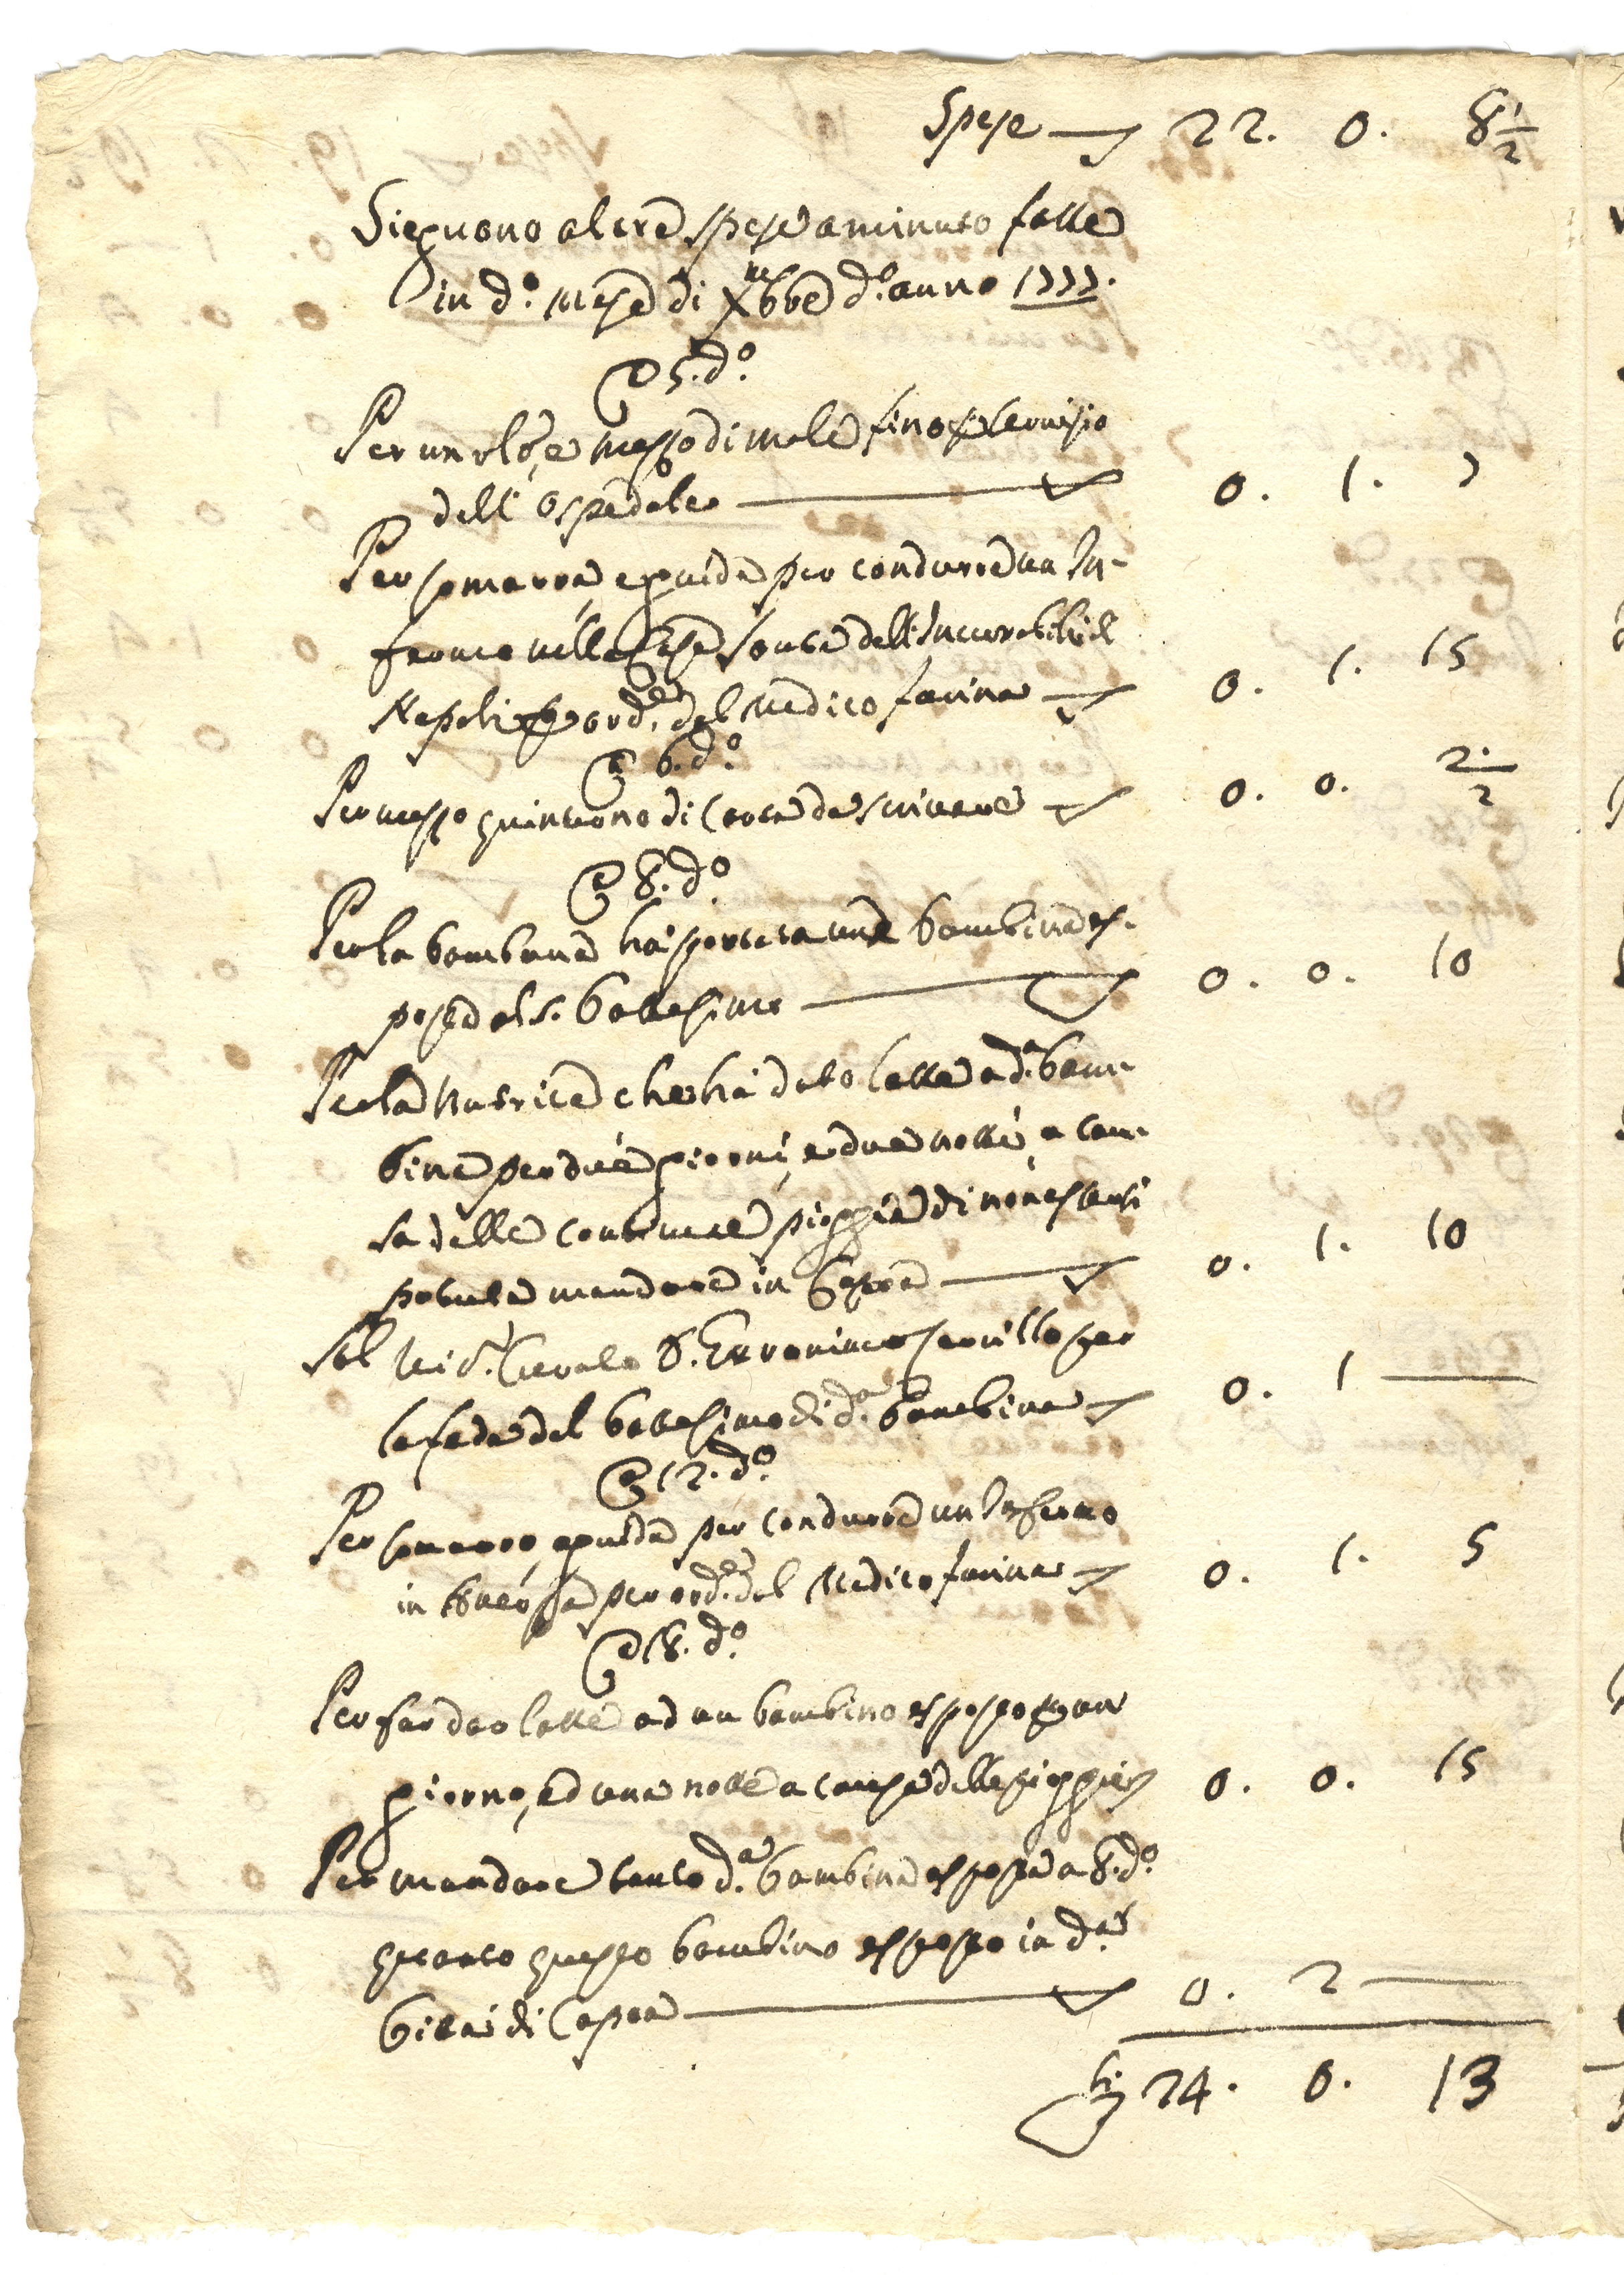 Spese 22. 0. 8 1/2
Sieguono altre spese a minuto fatte
in d.º mese di Xmbre d.º anno 1777.
A 5. d.º
Per un rlo, e mezzo di mele fino per servisio
dell' Ospedale 0. 1. 7
Per somarra, e guida per condurre un In-
fermo nella Casa Santa dell' Incurabili di
Napoli per ord.e del Medico Farina 0. 1. 15
A 6. d.º
Per mezzo quinterno di Carta da scrivere 0. 0. 2 1/2
A 8. d.º
Per la mammana ha portata una bambina es-
posta al S. Battesimo 0. 0. 10
Per la Nutrice che ha dato latte a d.ª bam-
bina per due giorni, e due notti, a cau-
sa delle continue pioggie di non essersi
potuta mandare in Capua 0. 1. 10
Al Curato D. Geronimo per
la fede del battesimo di d.ª bambina 0. 1
A 12. d.º
Per somarro, e guida per condurre un Infermo
in Aversa per ord.e del Medico Farina 0. 1. 5
A 18. d.º
Per far dar latte ad un bambino esposto per un
giorno, ed una notte a causa delle pioggie 0. 0. 15
Per mandare tanto d.ª bambina esposta a 8. d.º
quanto questo bambino esposto in d.ª
Città di Capua 0. 2
24. 0. 13